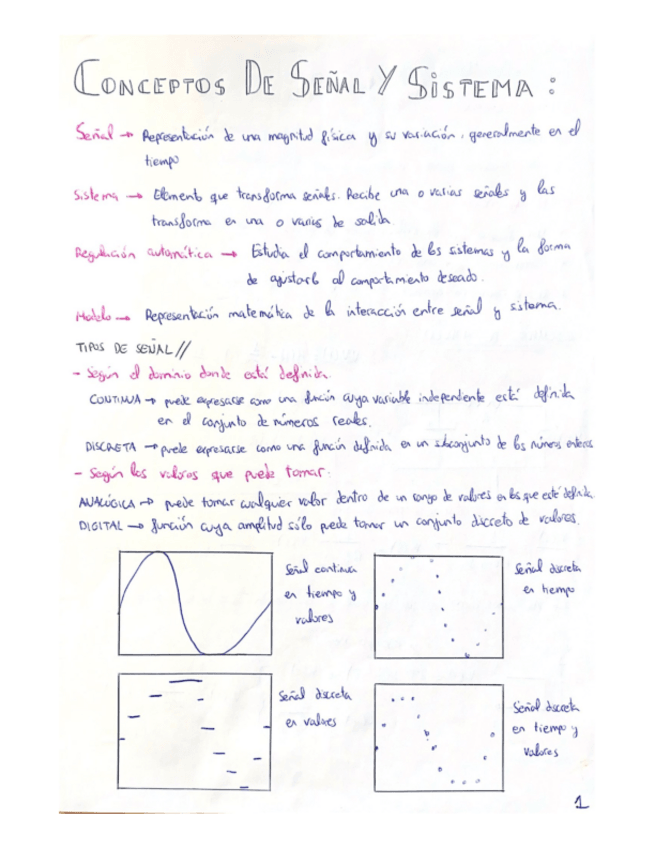 CONCEPTOS DE SEÑAL Y SISTEMA:
Señal → Representación de una magnitud física y su variación, generalmente en el
tiempo
Sistema → Elemento que transforma señales. Recibe una o varias señales y las
transforma en una o varias de salida.
Regulación automática → Estudia el comportamiento de los sistemas y la forma
de ajustarlo al comportamiento deseado.
Modelo → Representación matemática de la interacción entre señal y sistema.
TIPOS DE SEÑAL //
- Según el dominio donde está definida.
CONTINUA → puede expresarse como una función cuya variable independiente está definida
en el conjunto de números reales.
DISCRETA → puede expresarse como una función definida en un subconjunto de los números enteros
- Según los valores que puede tomar:
ANALÓGICA → puede tomar cualquier valor dentro de un rango de valores en los que esté definida.
DIGITAL → función cuya amplitud sólo puede tomar un conjunto discreto de valores.
Señal continua
en tiempo y
valores
Señal discreta
en tiempo
Señal discreta
en valores
Señal discreta
en tiempo y
valores
1